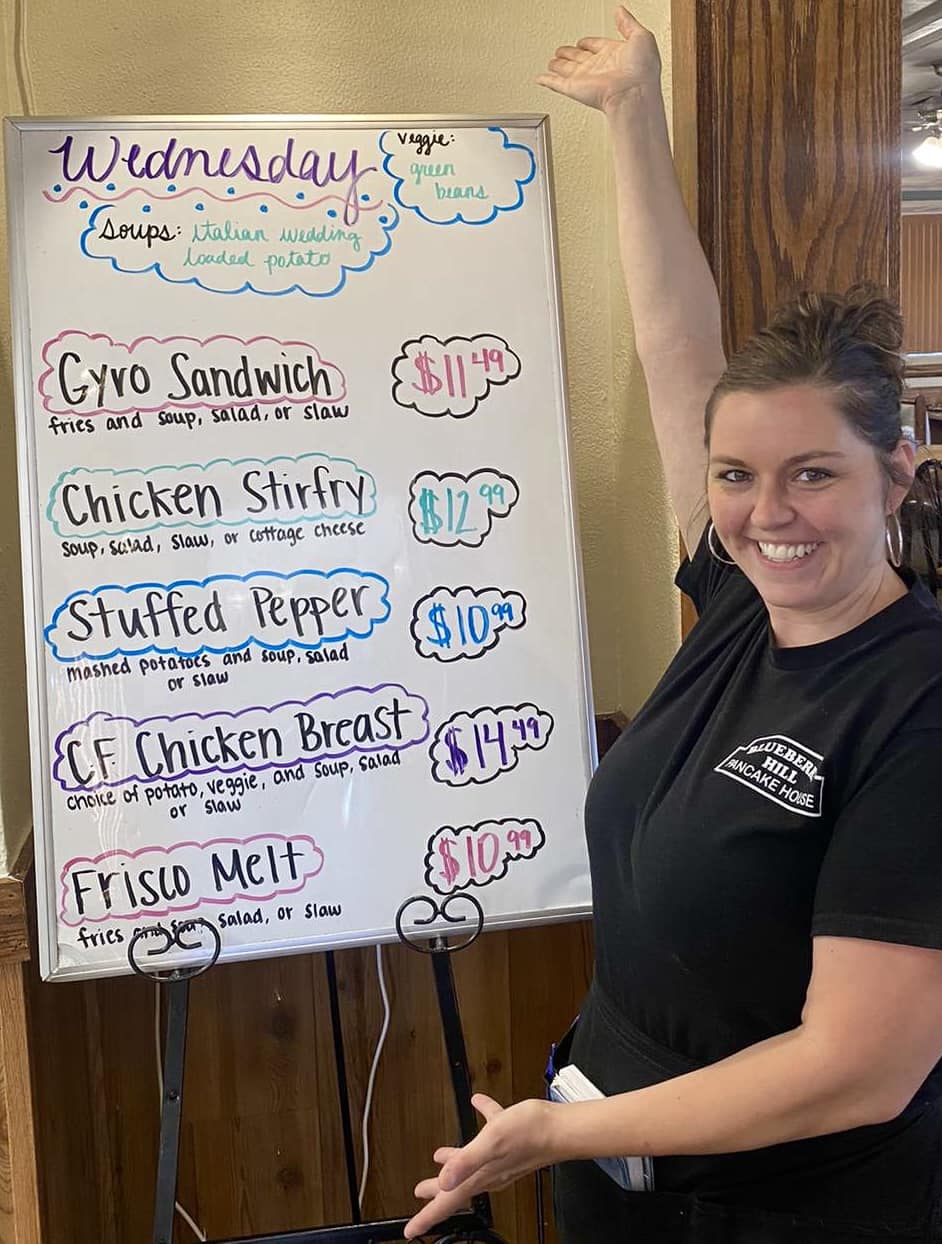 Wednesday
Veggie:
green
beans
Soups: Italian wedding
loaded potato
Gyro Sandwich $11 49
fries and soup, salad, or slaw
Chicken Stirfry $12 99
soup, salad, slaw, or cottage cheese
Stuffed Pepper $10 99
mashed potatoes and soup, salad
or slaw
CF Chicken Breast $14 49
choice of potato, veggie, and soup, salad
or slaw
Frisco Melt $10 99
fries and soup, salad, or slaw
BLUEBERRY
HILL
PANCAKE HOUSE